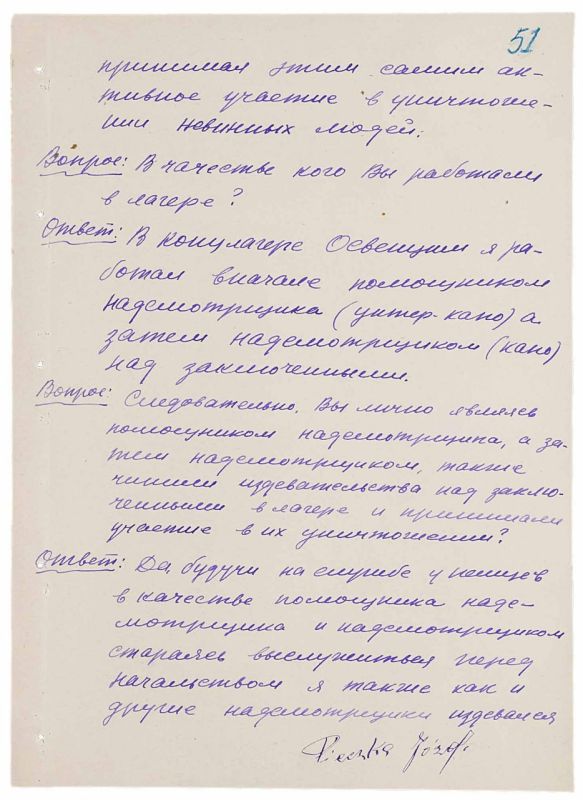 51
принимая этим самим ак-
тивное участие в уничтоже-
нии невинных людей.
Вопрос: В качестве кого Вы работали
в лагере?
Ответ: В концлагере Освенцим я ра-
ботал вначале помощником
надсмотрщика (унтер-капо) а
затем надсмотрщиком (капо)
над заключенными.
Вопрос: Следовательно, Вы лично являясь
помощником надсмотрщика, а за-
тем надсмотрщиком, также
чинили издевательства над заклю-
ченными в лагере и принимали
участие в их уничтожении?
Ответ: Да, будучи на службе у немцев
в качестве помощника надс-
мотрщика и надсмотрщиком
стараясь выслужиться перед
начальством я также как и
другие надсмотрщики издевался
Pieczka Józef.